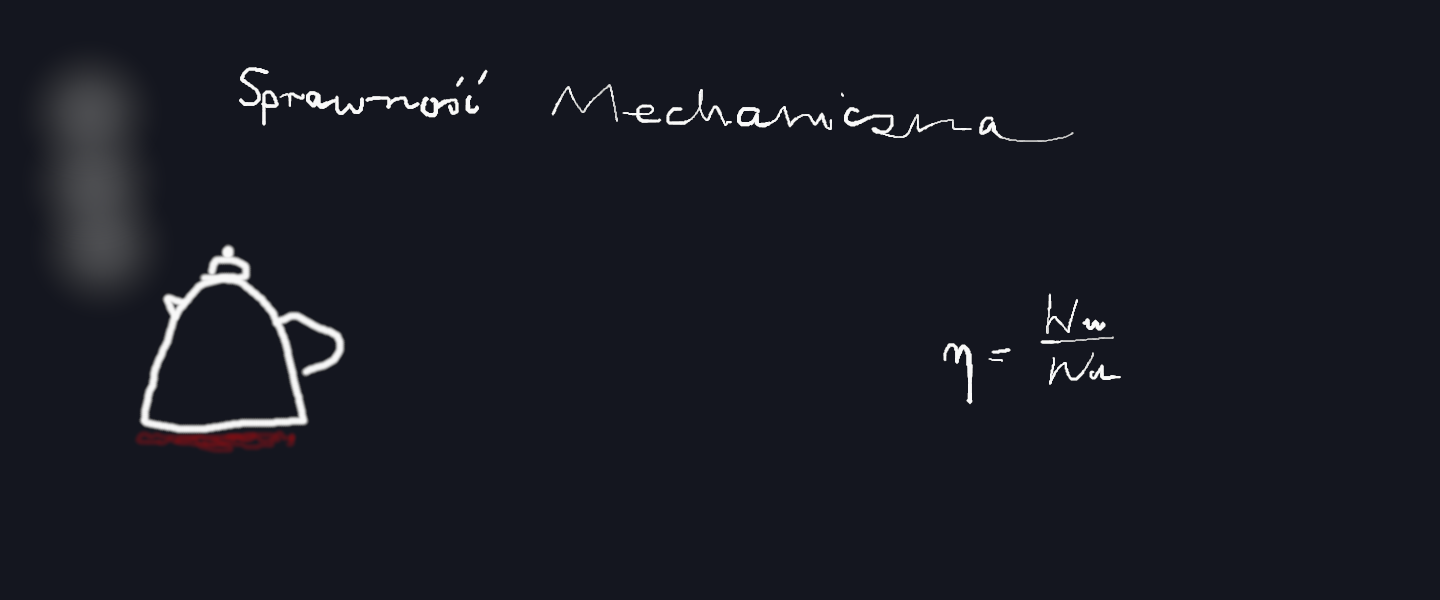 Sprawność Mechaniczna
η = Wu / Wd